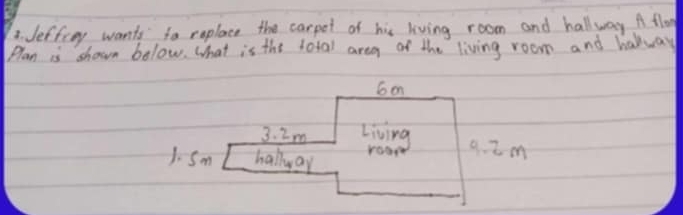 3. Jeffrey wants to replace the carpet of his living room and hallway. A floo
Plan is shown below. What is the total area of the living room and hallway
6m
3.2m
Living
room
1.5m
hallway
4.2 m